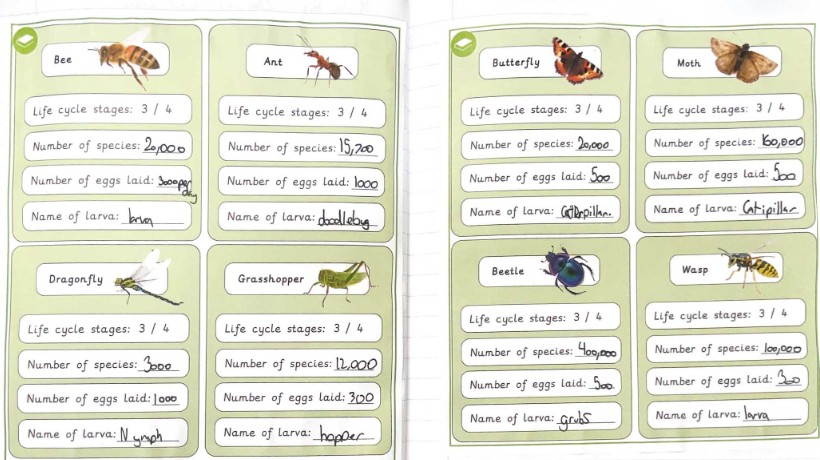 Bee
Life cycle stages: 3 / 4
Number of species: 20,000
Number of eggs laid: 3000 per day
Name of larva: larva
Ant
Life cycle stages: 3 / 4
Number of species: 15,700
Number of eggs laid: 1000
Name of larva: doodlebug
Dragonfly
Life cycle stages: 3 / 4
Number of species: 3000
Number of eggs laid: 1000
Name of larva: Nymph
Grasshopper
Life cycle stages: 3 / 4
Number of species: 12,000
Number of eggs laid: 300
Name of larva: hopper
Butterfly
Life cycle stages: 3 / 4
Number of species: 20,000
Number of eggs laid: 500
Name of larva: Catterpillar.
Moth
Life cycle stages: 3 / 4
Number of species: 160,000
Number of eggs laid: 500
Name of larva: Catipillar
Beetle
Life cycle stages: 3 / 4
Number of species: 400,000
Number of eggs laid: 500
Name of larva: grubs
Wasp
Life cycle stages: 3 / 4
Number of species: 100,000
Number of eggs laid: 300
Name of larva: larva